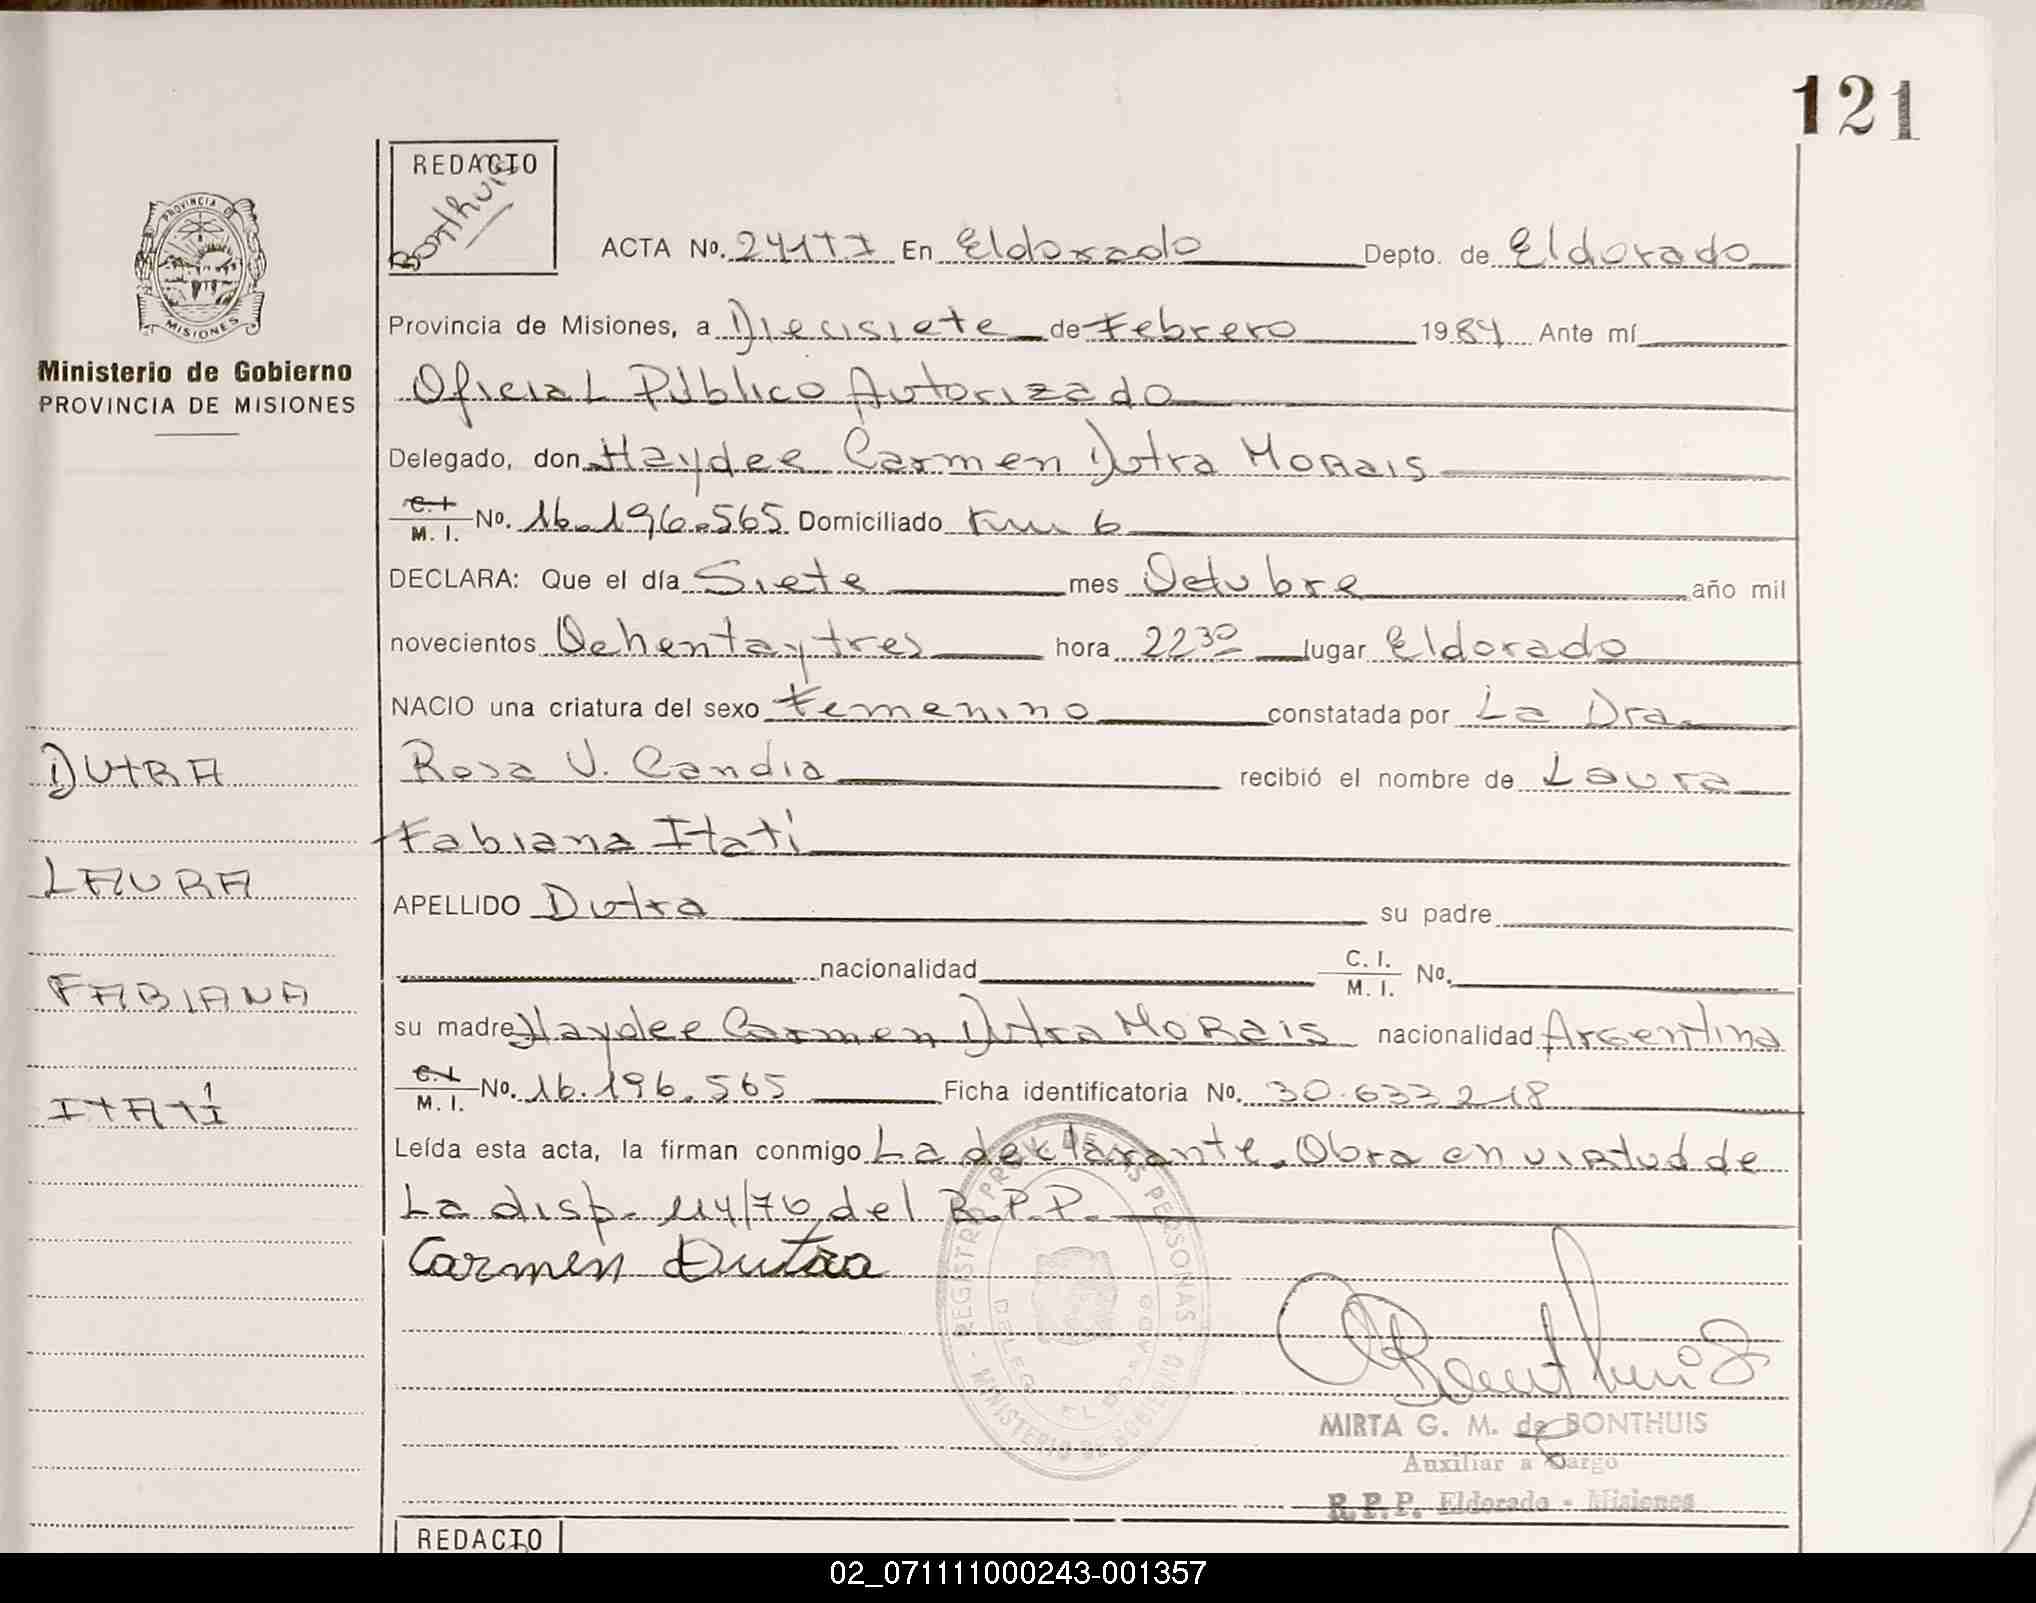 121
REDACTO
Bonthuis
PROVINCIA DE
MISIONES
Ministerio de Gobierno
PROVINCIA DE MISIONES
ACTA No. En Eldorado Depto. de Eldorado
Provincia de Misiones, a Diecisiete de Febrero 1984 Ante mí
Oficial Público Autorizado
Delegado, don Haydee Carmen Dutra Morais
C.I. M. I. No. 16.196.565 Domiciliado Km 6
DECLARA: Que el día Siete mes Octubre año mil
novecientos Ochentaytres hora 22 30 lugar Eldorado
NACIO una criatura del sexo Femenino constatada por La Dra.
Rosa V. Candia recibió el nombre de Laura
Fabiana Itatí
APELLIDO Dutra su padre
nacionalidad C. I. M. I. No.
su madre Haydee Carmen Dutra Morais nacionalidad Argentina
C.I. M. I. No. 16.196.565 Ficha identificatoria No. 30.633.218
Leída esta acta, la firman conmigo La declarante. Obra en virtud de
La disp. 114/76 del R.P.P.
Carmen Dutra
DUTRA
LAURA
FABIANA
ITATÍ
REGISTRO PROV. DE LAS PERSONAS
MINISTERIO DE GOBIERNO
DELEG. ELDORADO
Bonthuis
MIRTA G. M. de BONTHUIS
Auxiliar a Cargo
R.P.P. Eldorado - Misiones
REDACTO
02_071111000243-001357